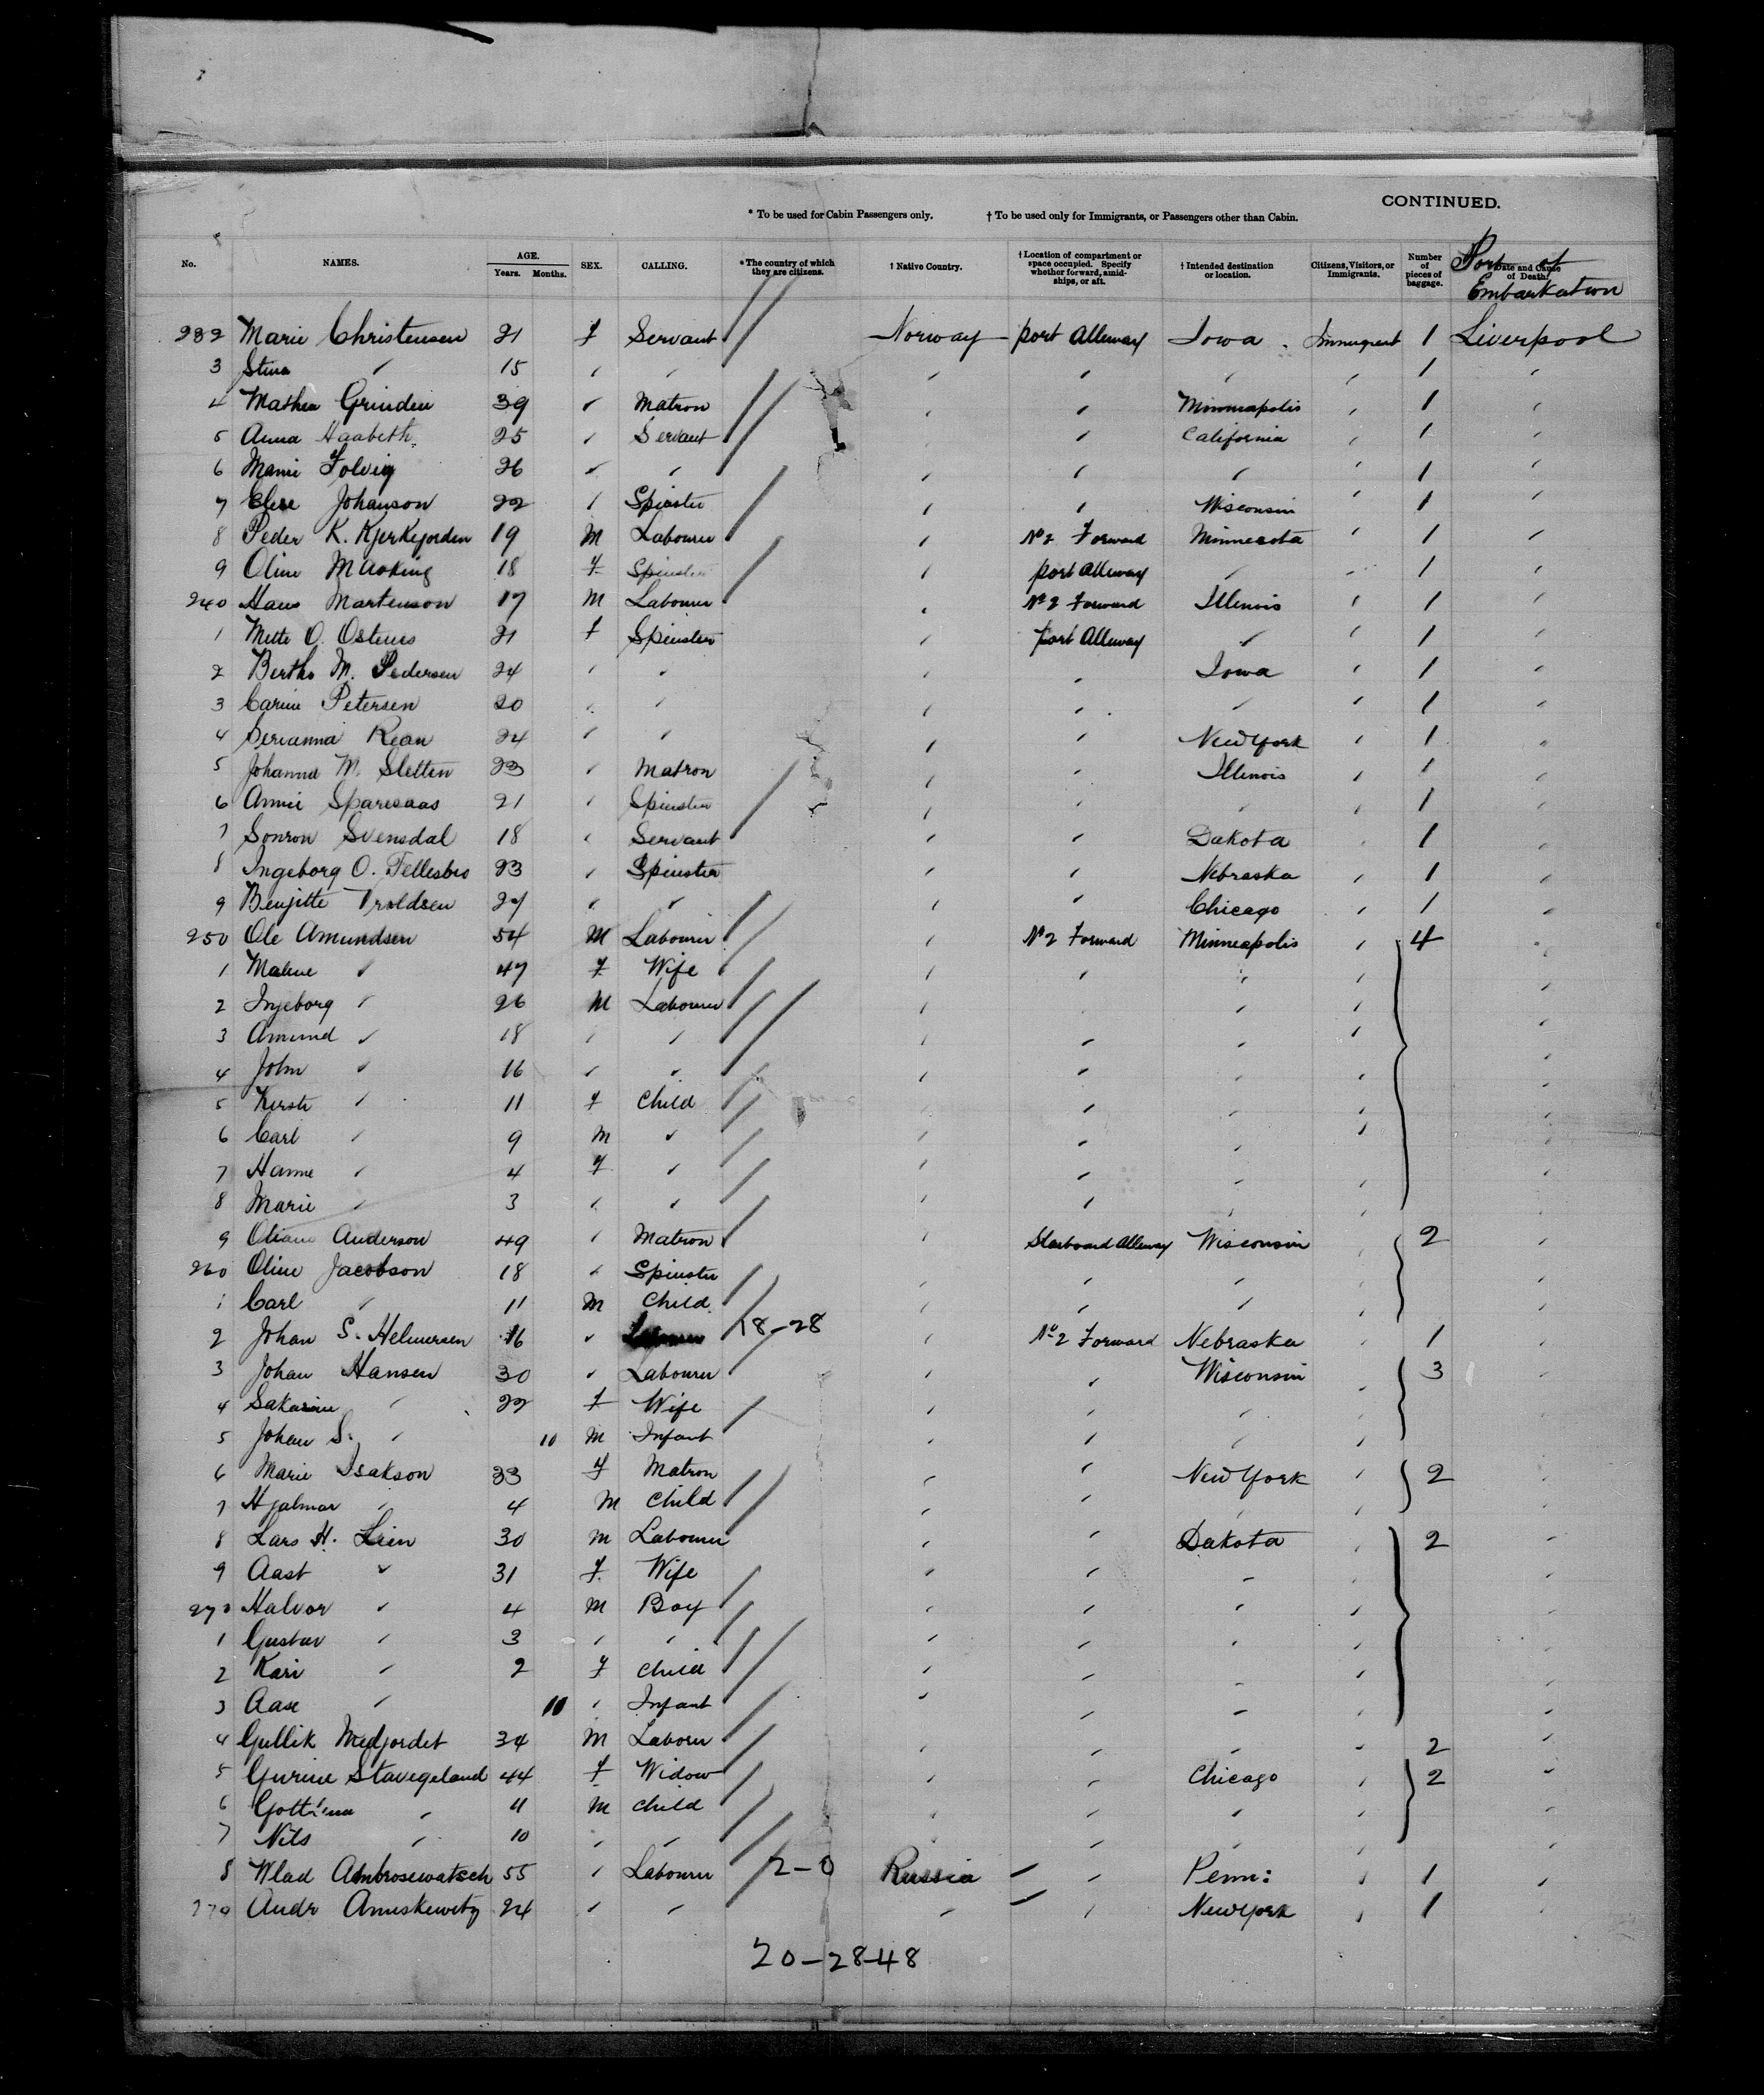 CONTINUED.
* To be used for Cabin Passengers only. † To be used only for Immigrants, or Passengers other than Cabin.
No. NAMES. AGE. Years. Months. SEX. CALLING. * The country of which they are citizens. † Native Country. † Location of compartment or space occupied. Specify whether forward, amidships, or aft. † Intended destination or location. Citizens, Visitors, or Immigrants. Number of pieces of baggage. Date and Cause of Death. Port of Embarkation
232 Marie Christensen 21 f Servant Norway port Alleway Iowa Immigrant 1 Liverpool
3 Stina " 15 " " " " " " 1 "
4 Mathea Grinden 39 " Matron " " Minneapolis " 1 "
5 Anna Haabeth 25 " Servant " California " 1 "
6 Manie Folvig 26 " " " " " " 1 "
7 Elise Johanson 22 " Spinster " " Wisconsin " 1 "
8 Peder K. Kjerkejorden 19 M Labourer " No 2 Forward Minnesota " 1 "
9 Oline 18 f Spinster " port Alleway " " 1 "
240 Hans Martenson 17 M Labourer " No 2 Forward Illinois " 1 "
1 Mette O. Ostenes 21 f Spinster " port Alleway " " 1 "
2 Bertha M. Pedersen 24 " " " " Iowa " 1 "
3 Carine Petersen 20 " " " " " " 1 "
4 Serianna Rean 24 " " " " New York " 1 "
5 Johanna M. Sletten 23 " Matron " " Illinois " 1 "
6 Annie Sparesaas 21 " Spinster " " " " 1 "
7 Sonron Svensdal 18 " Servant " " Dakota " 1 "
8 Ingeborg O. Fellesbro 23 " Spinster " " Nebraska " 1 "
9 Benjitte Troldsen 27 " " " " Chicago " 1 "
250 Ole Amundsen 54 M Labourer " No 2 Forward Minneapolis " 4 "
1 Malene " 47 f Wife " " " " "
2 Ingeborg " 26 M Labourer " " " "
3 Amund " 18 " " " " " " "
4 John " 16 " " " " " " "
5 Kersti " 11 f Child " " " " "
6 Carl " 9 M " " " " " "
7 Hanne " 4 f " " " " " "
8 Marie " 3 " " " " " " "
9 Oliane Anderson 49 " Matron " Starboard Alleway Wisconsin " 2 "
260 Oline Jacobson 18 " Spinster " " " " "
1 Carl " 11 M Child " " " " "
2 Johan S. Helmersen 16 " 18-28 " No 2 Forward Nebraska " 1 "
3 Johan Hansen 30 " Labourer " " Wisconsin " 3 "
4 Sakarine " 22 f Wife " " " " "
5 Johan S. " 10 M Infant " " " " "
6 Marie Isakson 33 f Matron " " New York " 2 "
7 Hjalmar " 4 M Child " " " " "
8 Lars H. Lien 30 M Labourer " " Dakota " 2 "
9 Aast " 31 f Wife " " " " "
270 Halvor " 4 M Boy " " " " "
1 Gustav " 3 " " " " " " "
2 Kari " 2 f Child " " " " "
3 Aase " 10 " Infant " " " " "
4 Gullik Medjordet 34 M Laborer " " " " 2 "
5 Gurine Stavegeland 44 f Widow " " Chicago " 2 "
6 " 11 M Child " " " " "
7 Nils " 10 " " " " " " "
8 Wlad Ambrosewatsch 55 " Labourer 2-0 Russia " Penn: " 1 "
279 Andr Amuskewitz 24 " " " " New York " 1 "
20-28-48